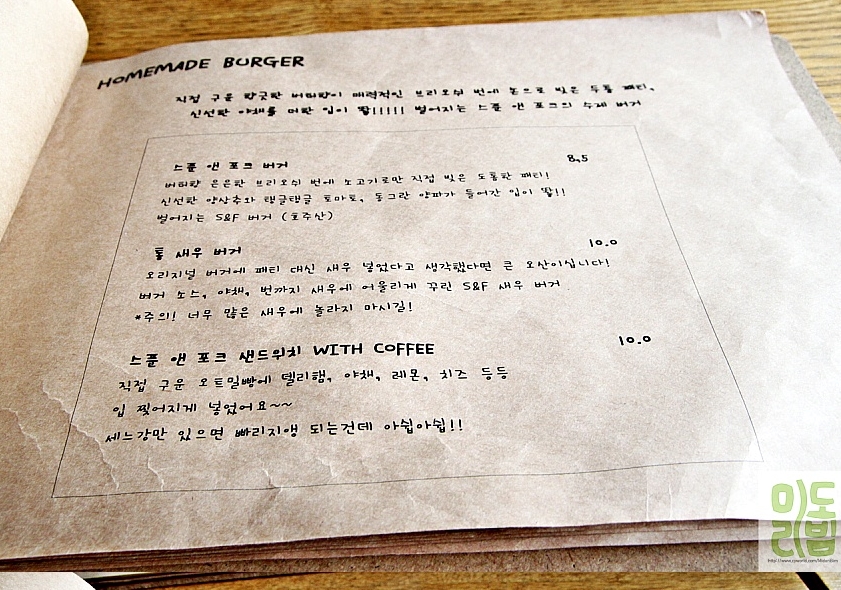 HOMEMADE BURGER
직접 구운 향긋한 버터향이 매력적인 브리오쉬 번에 손으로 빚은 두툼 패티,
신선한 야채를 더한 입이 딱!!!!! 벌어지는 스푼 앤 포크의 수제 버거
스푼 앤 포크 버거 8.5
버터향 은은한 브리오쉬 번에 소고기로만 직접 빚은 도톰한 패티!
신선한 양상추와 탱글탱글 토마토, 동그란 양파가 들어간 입이 딱!!
벌어지는 S&F 버거 (호주산)
통 새우 버거 10.0
오리지널 버거에 패티 대신 새우 넣었다고 생각했다면 큰 오산이십니다!
버거 소스, 야채, 번까지 새우에 어울리게 꾸린 S&F 새우 버거
*주의! 너무 많은 새우에 놀라지 마시길!
스푼 앤 포크 샌드위치 WITH COFFEE 10.0
직접 구운 오트밀빵에 델리햄, 야채, 레몬, 치즈 등등
입 찢어지게 넣었어요~~
세느강만 있으면 빠리지앵 되는건데 아쉽아쉽!!
미도
리빔